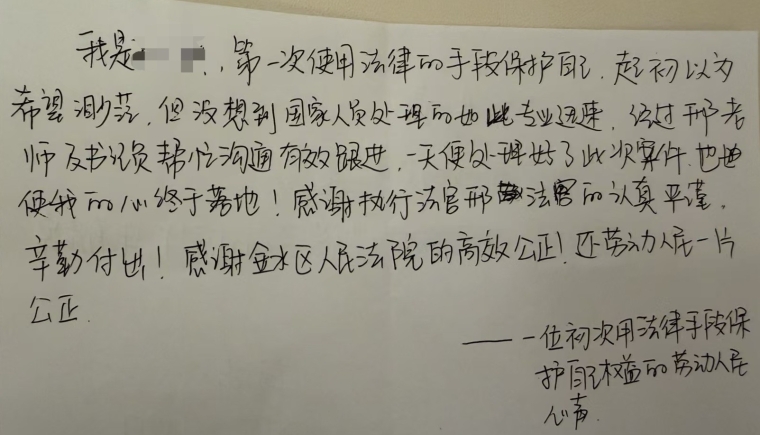 我是，第一次使用法律的手段保护自己，起初以为
希望渺茫，但没想到国家人员处理的如此专业迅速，经过邢老
师及书记员帮忙沟通有效跟进，一天便处理好了此次案件，也
使我的心终于落地！感谢执行法官邢法官的认真严谨，
辛勤付出！感谢金水区人民法院的高效公正！还劳动人民一片
公正.
——一位初次用法律手段保
护自己权益的劳动人民
心声.